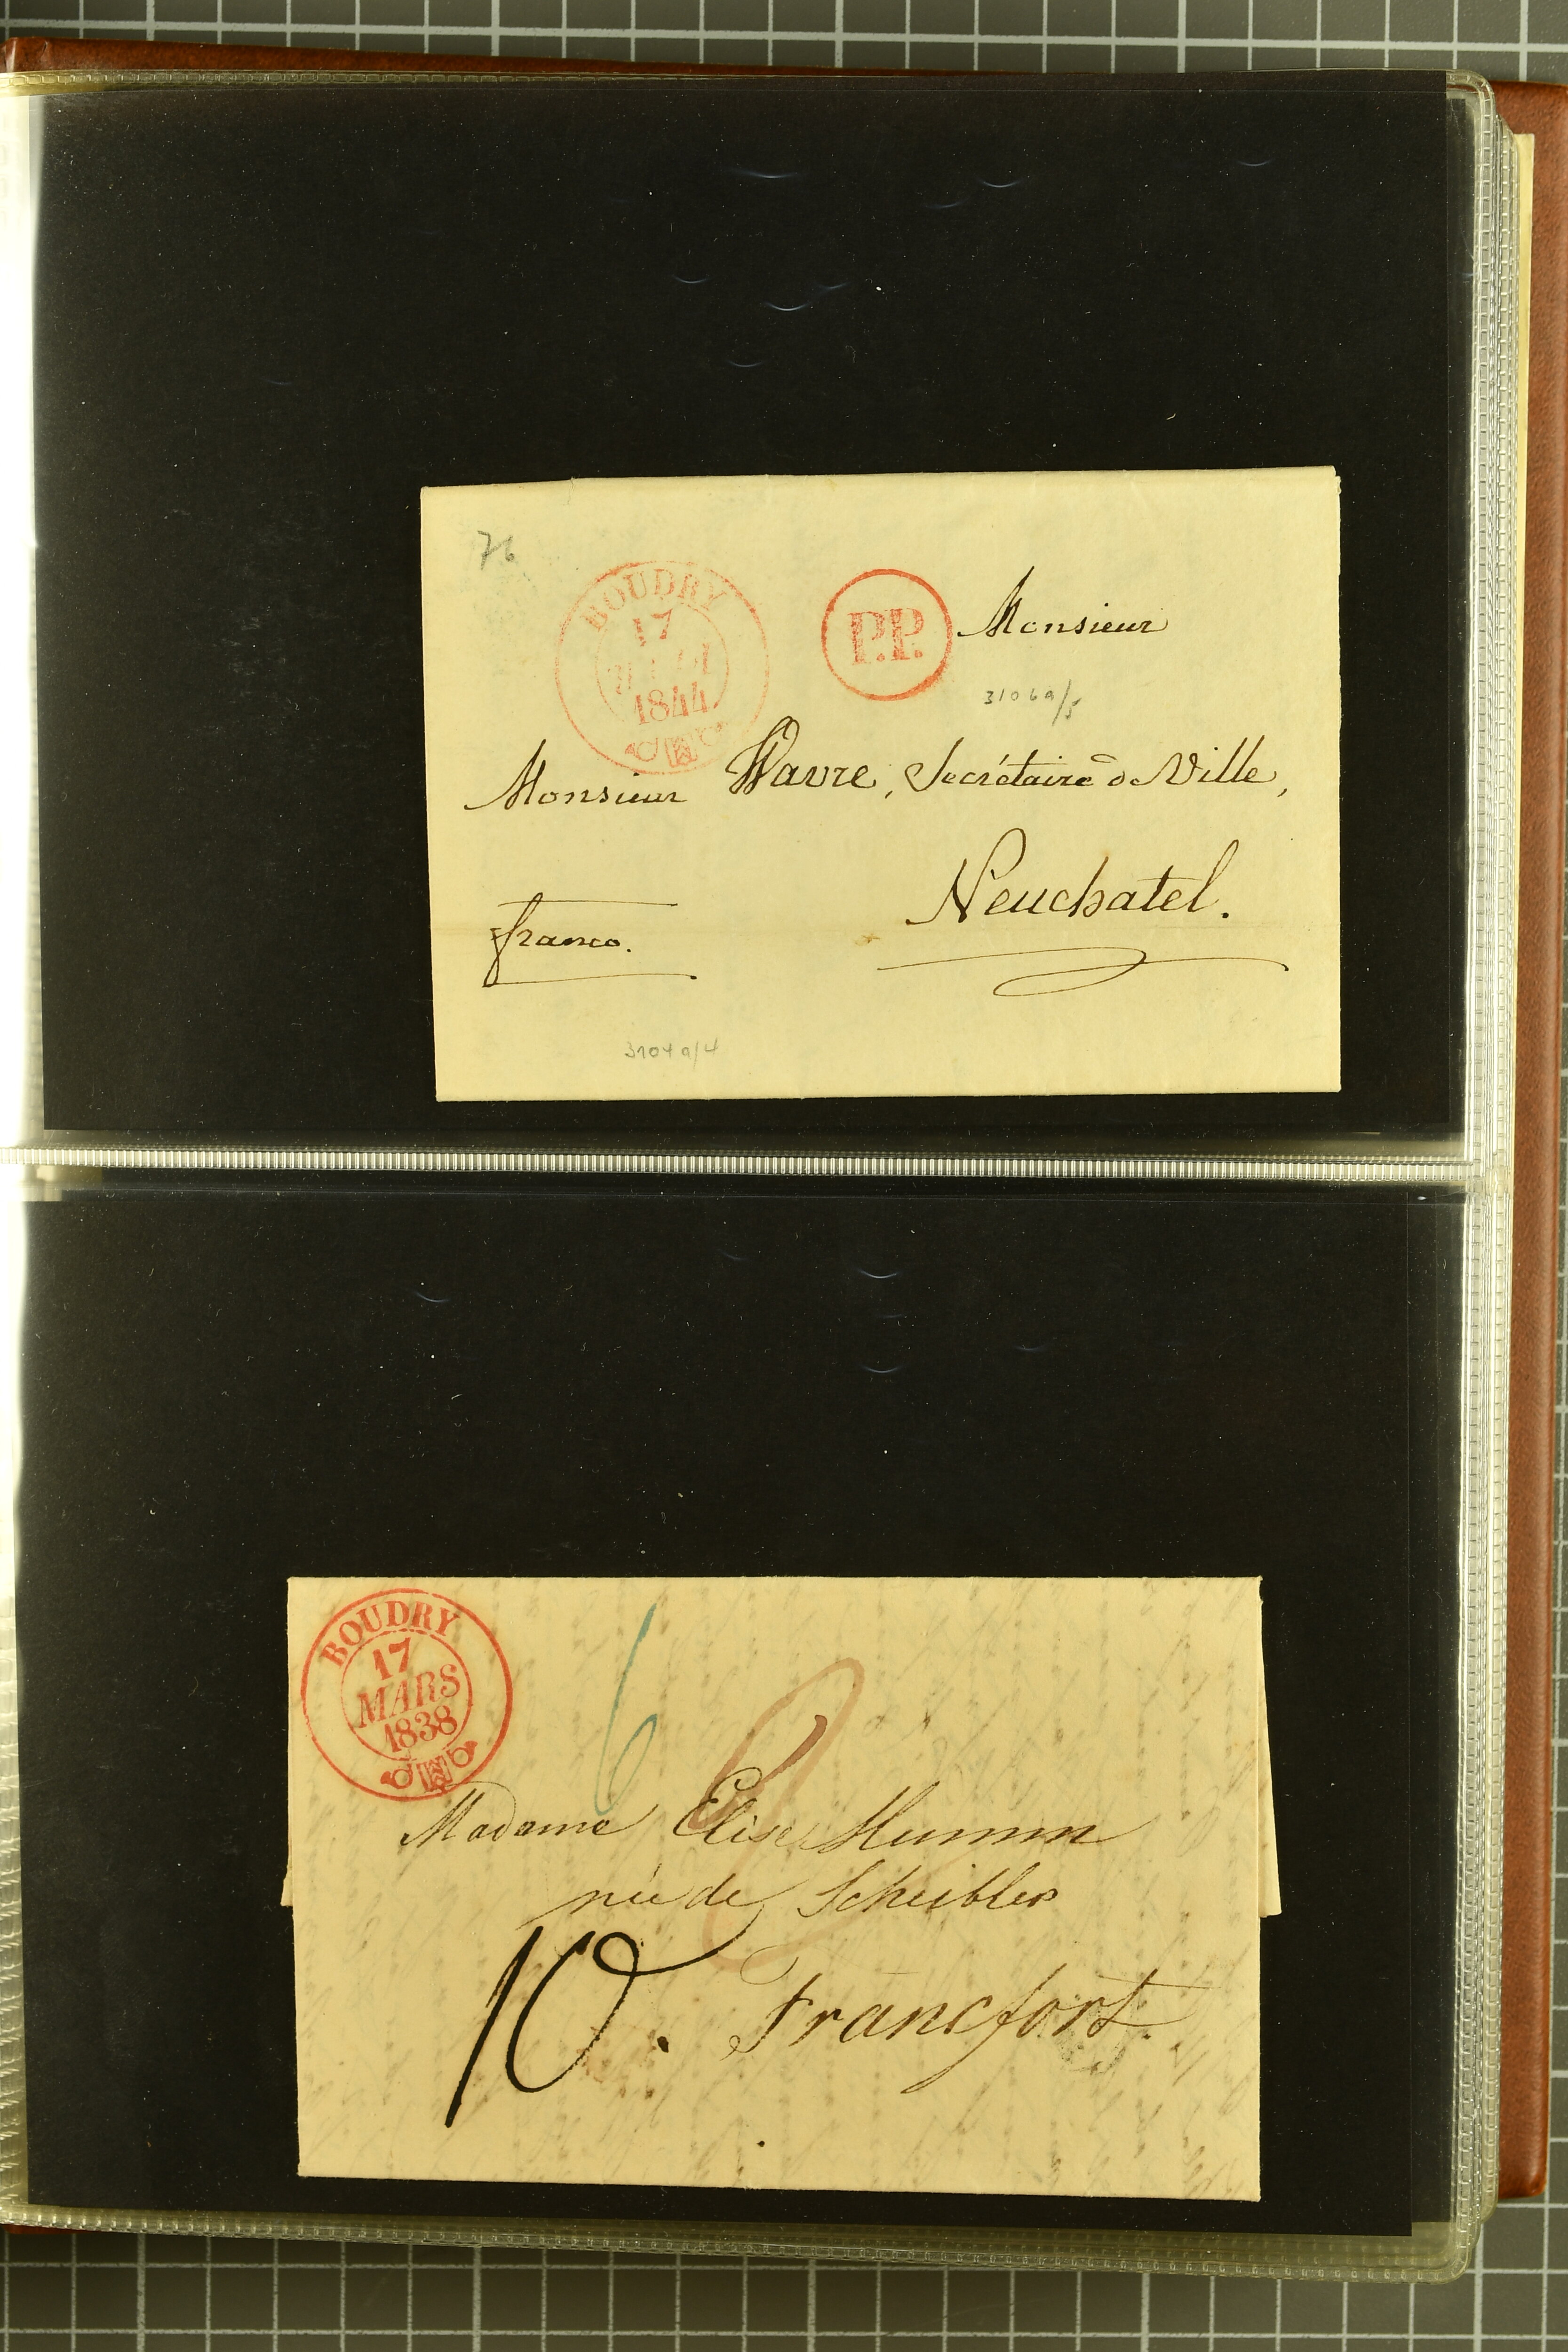 76
BOUDRY
17
1844
P.P.
Monsieur
3106a/5
Monsieur Wavre, Secrétaire de Ville,
Neuchatel.
franco.
3104a/4
BOUDRY
17
MARS
1838
6
Madame Elise Mumm
née de Scheibler
10.
Francfort